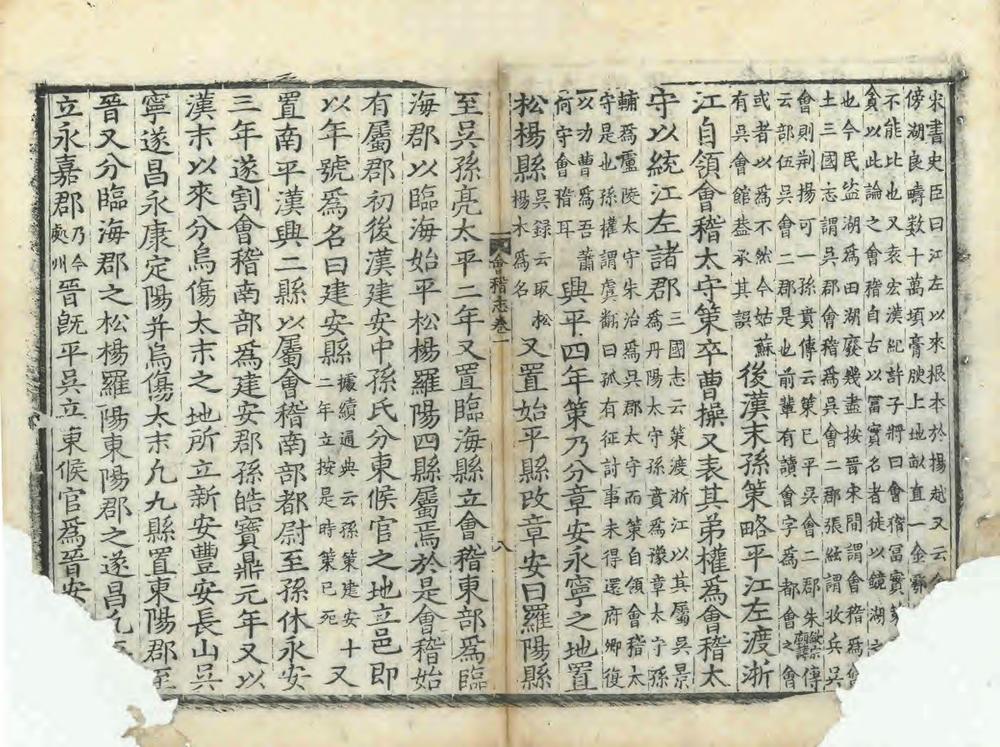 宋書史臣曰江左以來根本於揚越又云
傍湖良疇數十萬頃膏腴上地畝直一金鄠
不能比也又袁宏漢紀許子將曰會稽冨實策
貪以此論之會稽自古以冨實名者徒以鏡湖之
也今民盗湖爲田湖廢幾盡按晉宋間謂會稽爲會
土三國志謂吳郡會稽爲吳會二郡張紘謂收兵吳
會則荆揚可一孫賁傳云策已平吳會二郡朱欽宗廟諱傳
云部伍吳會二郡是也前輩有讀會字爲都會之會
或者以爲不然今姑蘇
有吳會館葢承其誤
後漢末孫策略平江左渡浙
江自領會稽太守策卒曹操又表其弟權爲會稽太
守以統江左諸郡
三國志云策渡浙江以其屬吳景
爲丹陽太守孫賁爲豫章太守孫
輔爲廬陵太守朱治爲吳郡太守而策自領會稽太
守是也孫權謂虞翻曰孤有征討事未得還府卿復
以功曹爲吾蕭
何守會稽耳
興平四年策乃分章安永寧之地置
松楊縣
吳録云取松
楊木爲名
又置始平縣改章安曰羅陽縣
會稽志卷一
八
至吳孫亮太平二年又置臨海縣立會稽東部爲臨
海郡以臨海始平松楊羅陽四縣屬焉於是會稽始
有屬郡初後漢建安中孫氏分東候官之地立邑即
以年號爲名曰建安縣
據續通典云孫策建安十又
二年立按是時策已死
置南平漢興二縣以屬會稽南部都尉至孫休永安
三年遂割會稽南部爲建安郡孫皓寶鼎元年又以
漢末以來分烏傷太末之地所立新安豐安長山吳
寧遂昌永康定陽并烏傷太末凡九縣置東陽郡至
晉又分臨海郡之松楊羅陽東陽郡之遂昌凡
立永嘉郡
乃今
處州
晉旣平吳立東候官爲晉安